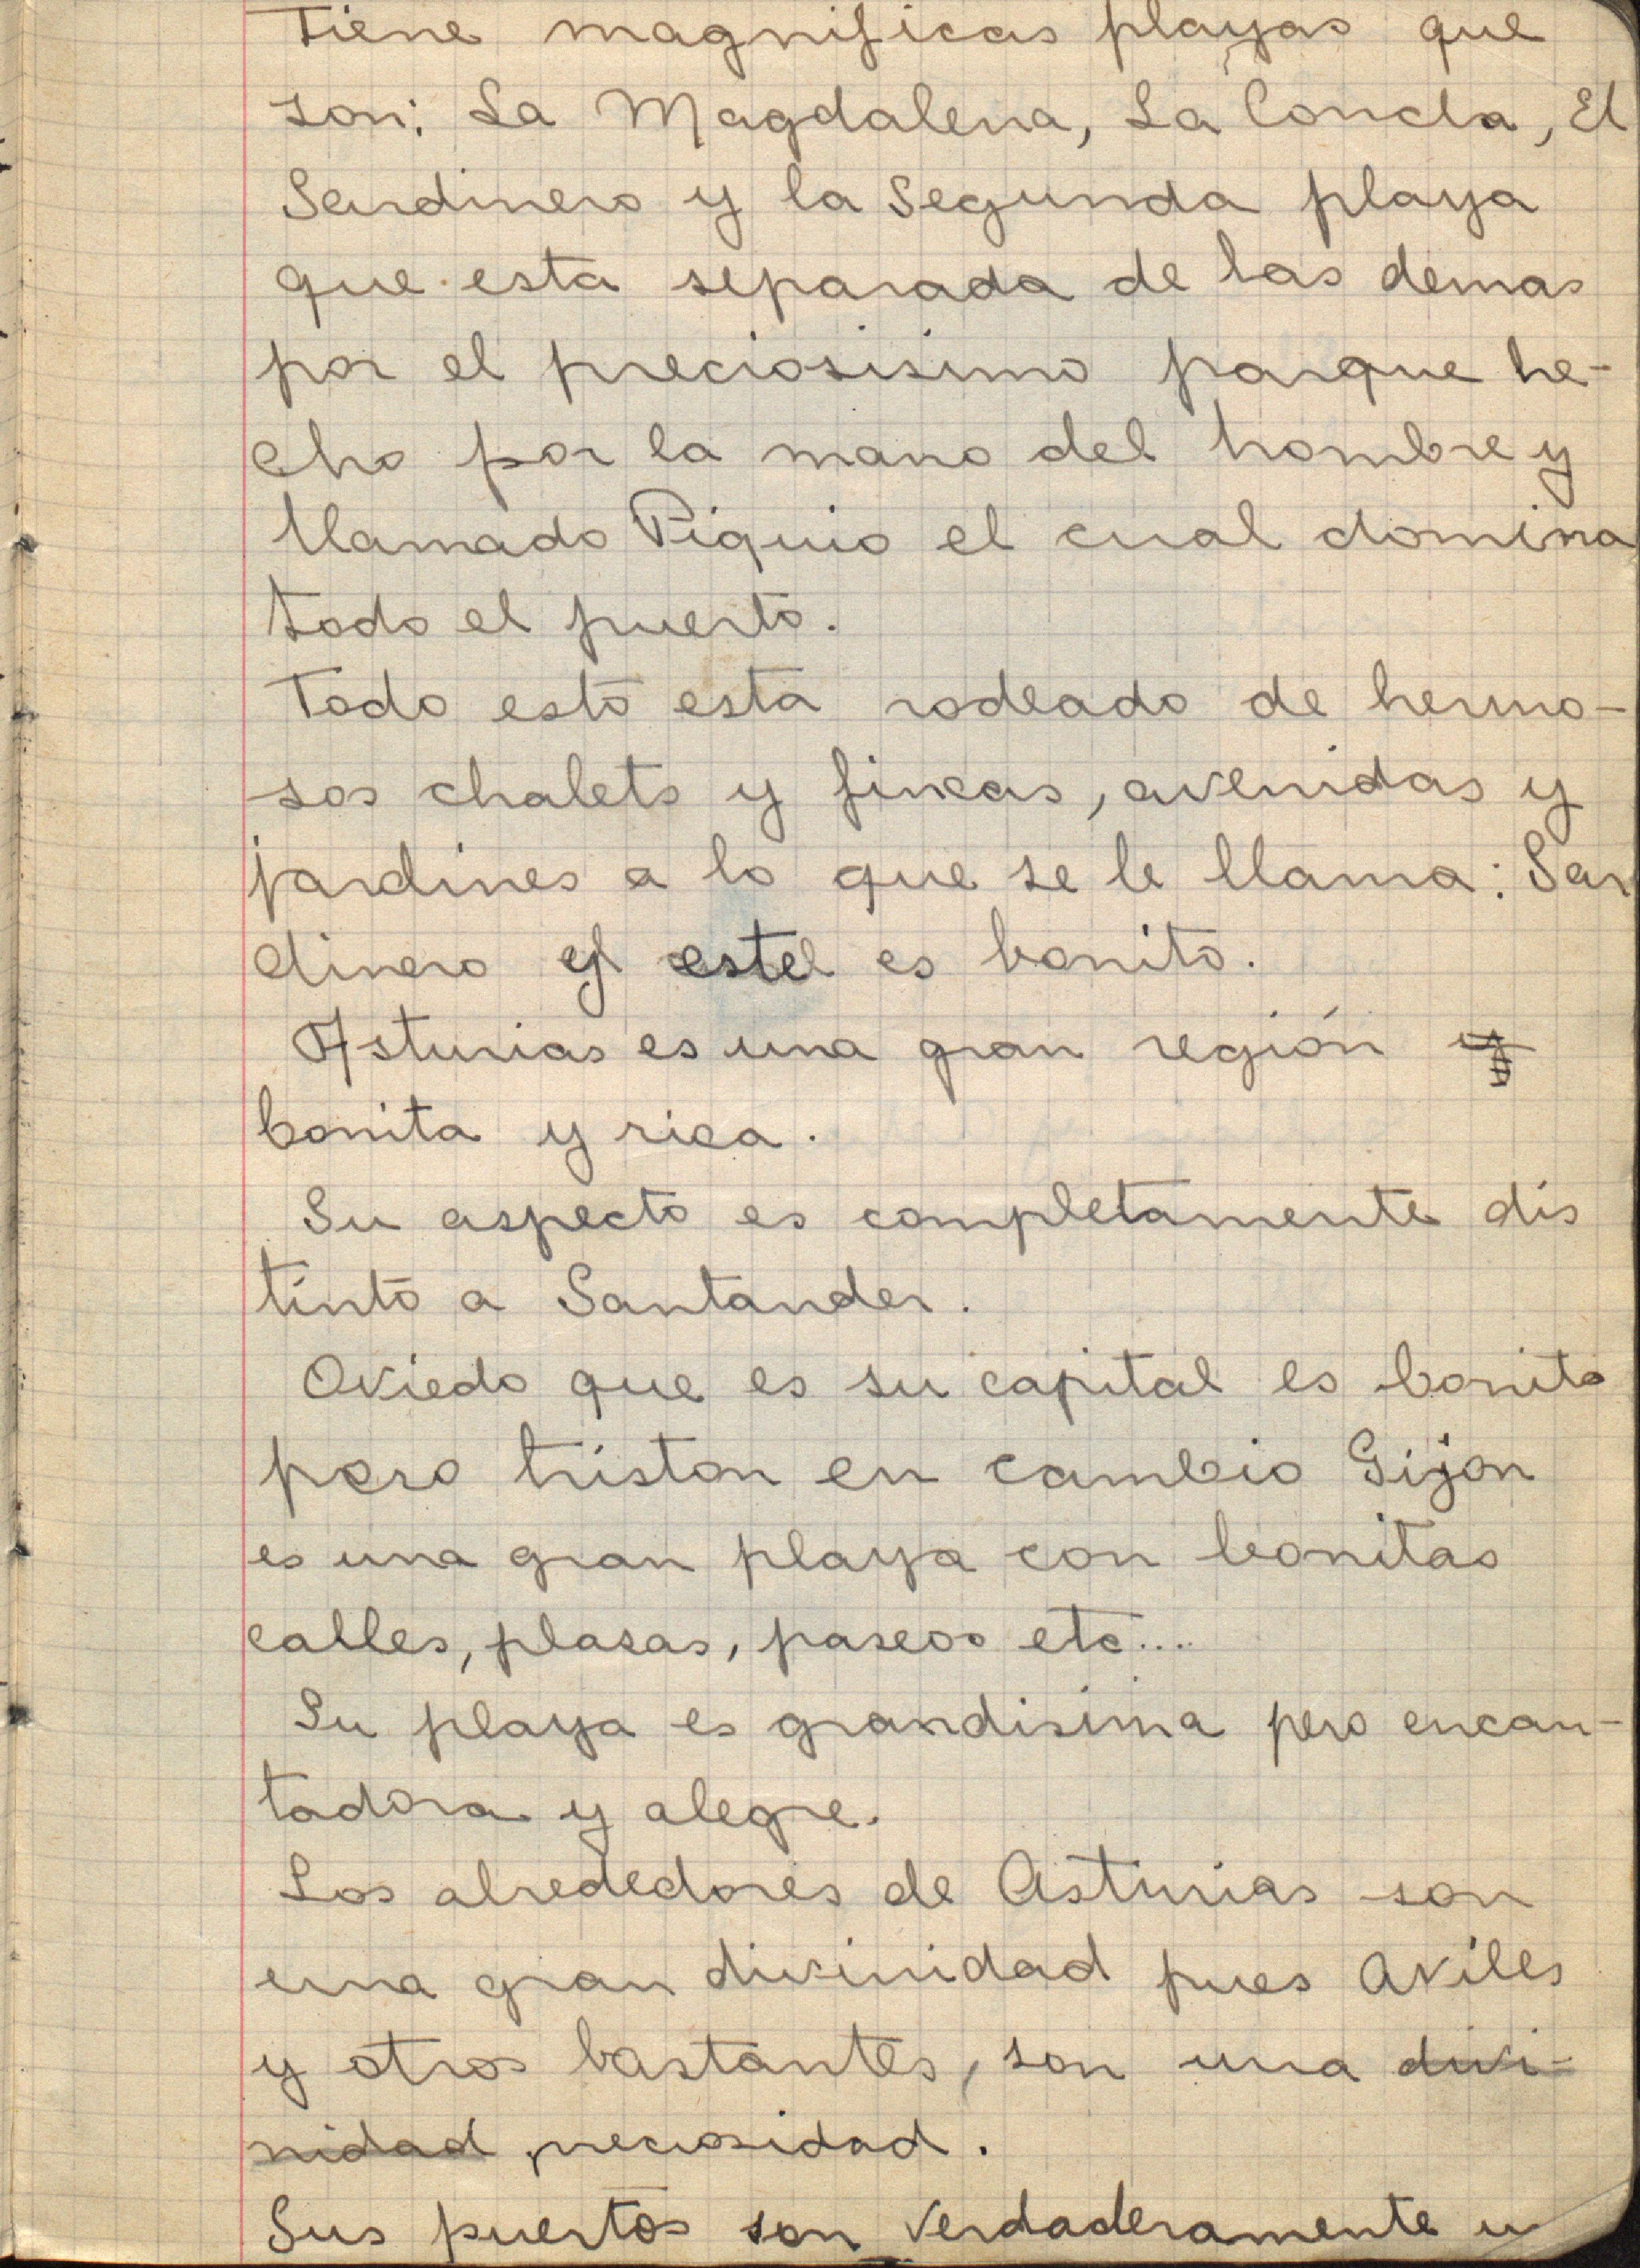 Tiene magnificas playas que
son: La Magdalena, La Concha, El
Sardinero y la Segunda playa
que esta separada de las demas
por el preciosisimo parque he-
cho por la mano del hombre y
llamado Piquio el cual domina
todo el puerto.
Todo esto esta rodeado de hermo-
sos chalets y fincas, avenidas y
jardines a lo que se le llama: Sar
dinero es bonito.
Asturias es una gran región y
bonita y rica.
Su aspecto es completamente dis
tinto a Santander.
Oviedo que es su capital es bonito
pero triston en cambio Gijon
es una gran playa con bonitas
calles, plasas, paseos etc....
Su playa es grandisima pero encan-
tadora y alegre.
Los alrededores de Asturias son
una gran divinidad pues Aviles
y otros bastantes, son una divi-
nidad preciosidad.
Sus puertos son verdaderamente